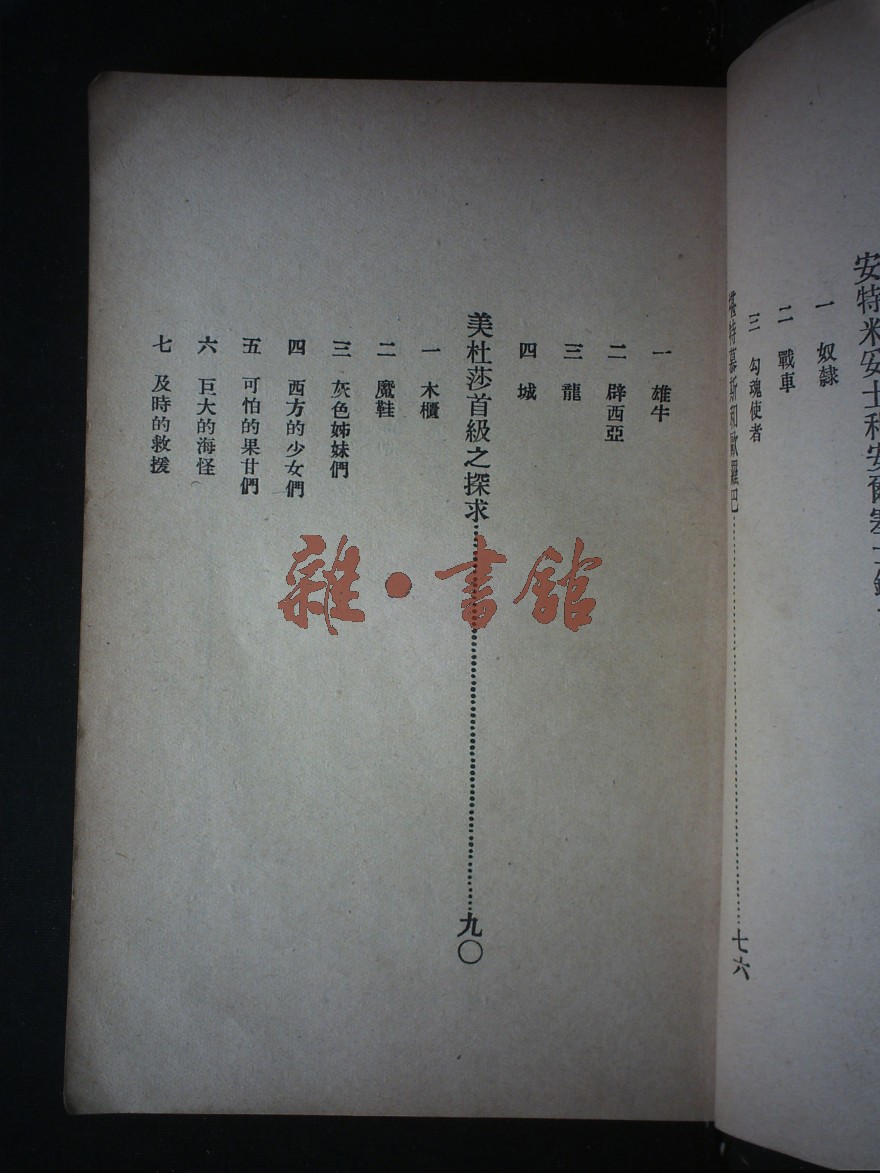 一 奴隸
二 戰車
三 勾魂使者
堪特慕斯和歐羅巴……七六
一 雄牛
二 辟西亞
三 龍
四 城
美杜莎首級之探求……九〇
一 木櫃
二 魔鞋
三 灰色姊妹們
四 西方的少女們
五 可怕的果甘們
六 巨大的海怪
七 及時的救援
雜·書館